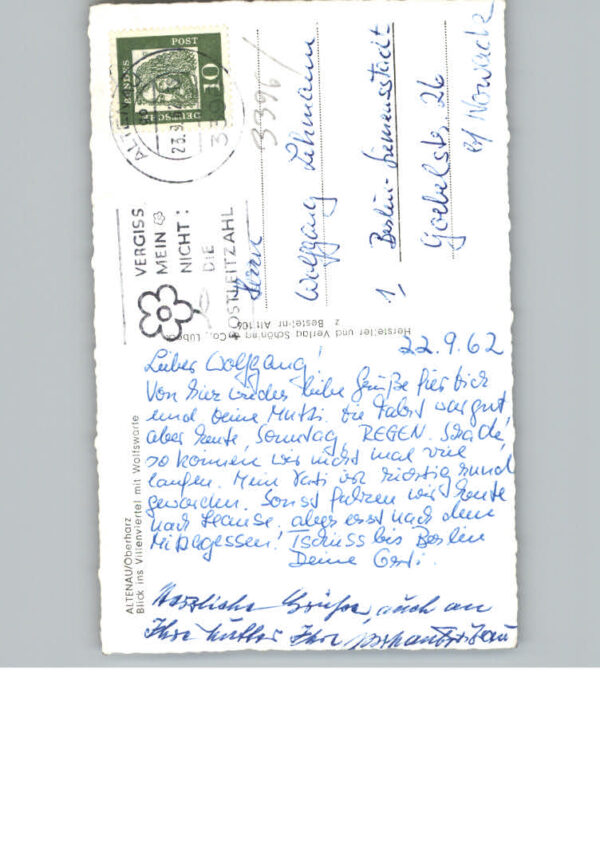 DEUTSCHE BUNDESPOST
10
23.9.62
3396
VERGISS
MEIN
NICHT:
DIE
POSTLEITZAHL
3396/
Herrn
Wolfgang Lehmann
1, Berlin-Siemensstadt
Goebelstr. 26
b/ Nowack
Hersteller und Verlag Schöning & Co., Lübeck
Bestel-nr Alt 104
ALTENAU/Oberharz
Blick ins Villenviertel mit Wolfswarte
22.9.62
Lieber Wolfgang!
Von hier wieder liebe Grüße für Dich
und Deine Mutti. Die Fahrt war gut,
aber heute, Sonntag REGEN. Schade,
so können wir nicht mal viel
laufen. Mein Vati ist richtig rund
geworden. Sonst fahren wir heute
nach Hause, aber erst nach dem
Mittagessen! Tschüss bis Berlin
Deine Gesi.
Herzliche Grüße, auch an
Ihre Mutter Ihre